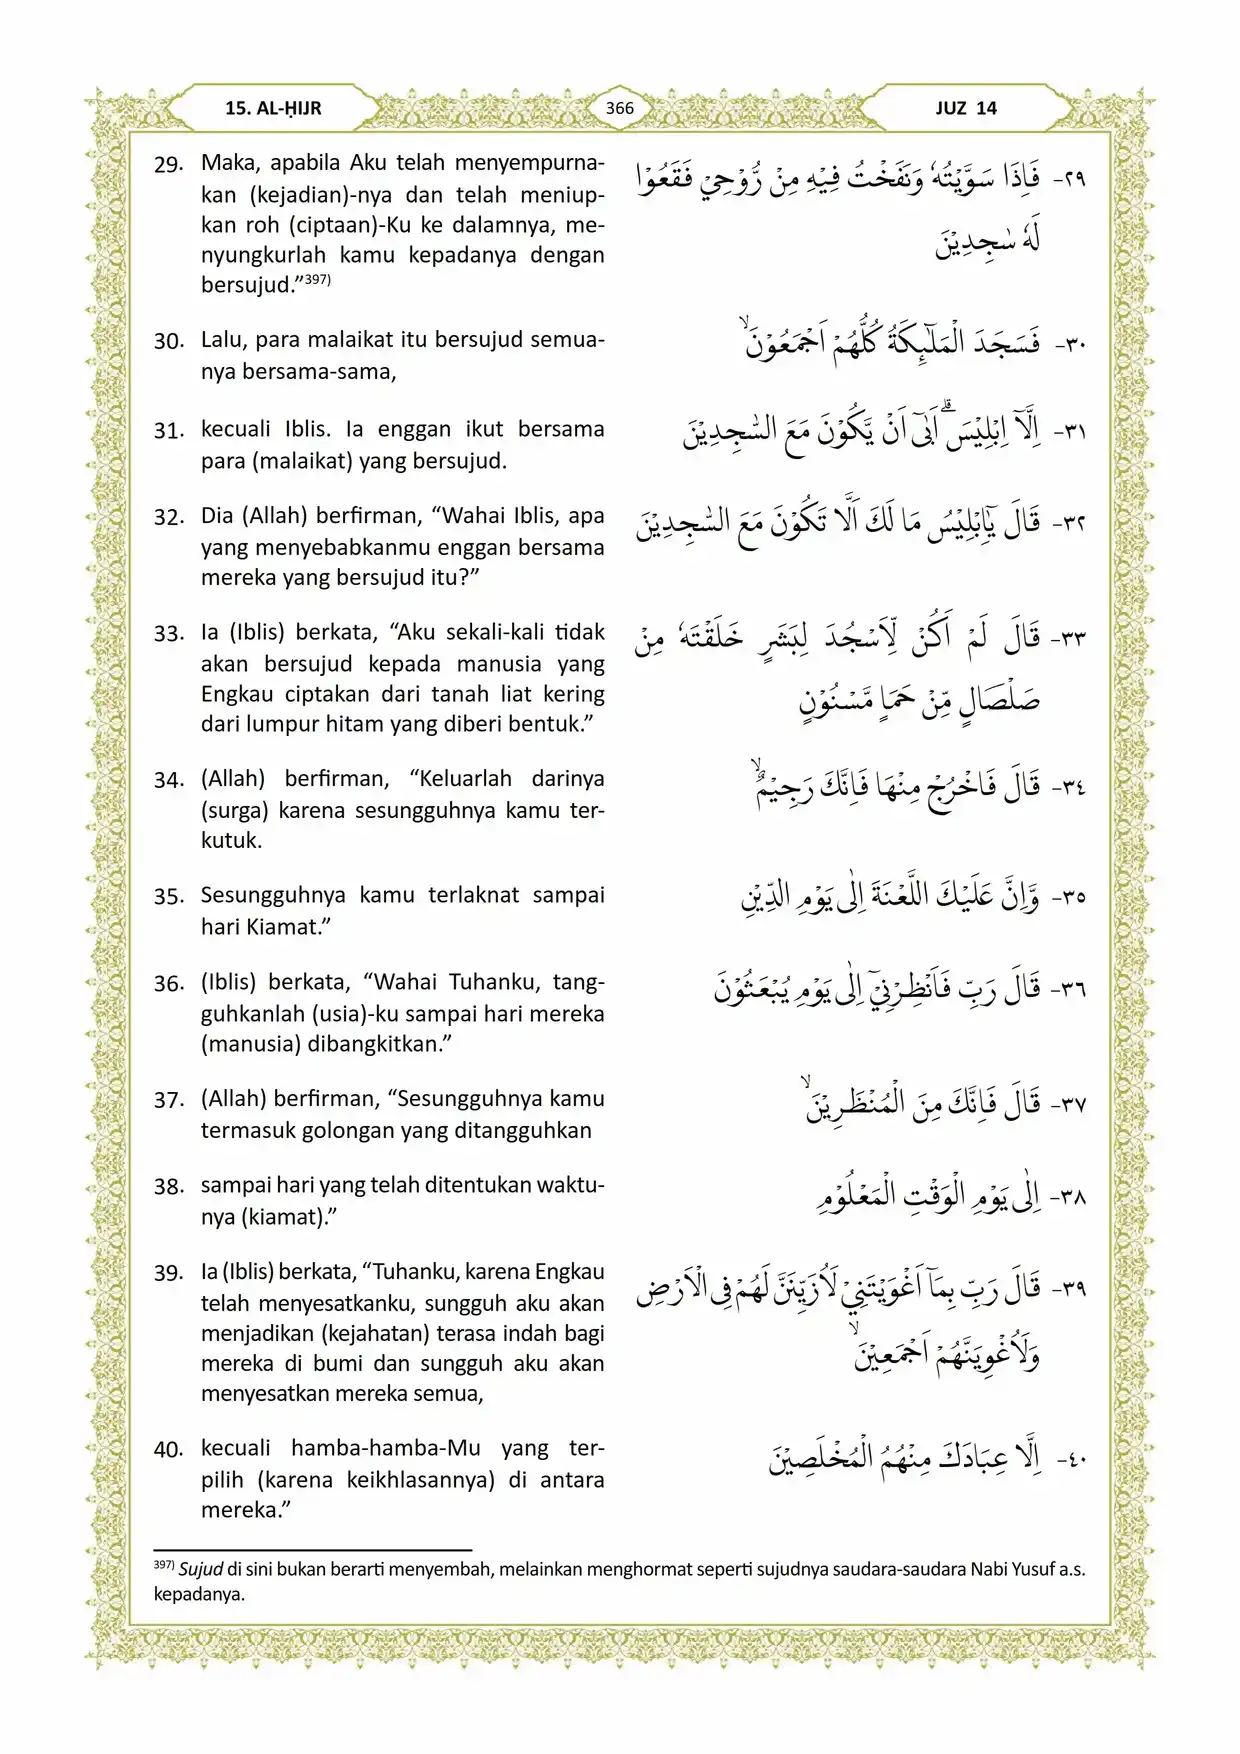 15. AL-ḤIJR
366
JUZ 14
29. Maka, apabila Aku telah menyempurna-
kan (kejadian)-nya dan telah meniup-
kan roh (ciptaan)-Ku ke dalamnya, me-
nyungkurlah kamu kepadanya dengan
bersujud.”397)
٢٩- فَاِذَا سَوَّيْتُهٗ وَنَفَخْتُ فِيْهِ مِنْ رُّوْحِيْ فَقَعُوْا
لَهٗ سٰجِدِيْنَ
30. Lalu, para malaikat itu bersujud semua-
nya bersama-sama,
٣٠- فَسَجَدَ الْمَلٰۤىِٕكَةُ كُلُّهُمْ اَجْمَعُوْنَۙ
31. kecuali Iblis. Ia enggan ikut bersama
para (malaikat) yang bersujud.
٣١- اِلَّآ اِبْلِيْسَۗ اَبٰىٓ اَنْ يَّكُوْنَ مَعَ السّٰجِدِيْنَ
32. Dia (Allah) berfirman, “Wahai Iblis, apa
yang menyebabkanmu enggan bersama
mereka yang bersujud itu?”
٣٢- قَالَ يٰٓاِبْلِيْسُ مَا لَكَ اَلَّا تَكُوْنَ مَعَ السّٰجِدِيْنَ
33. Ia (Iblis) berkata, “Aku sekali-kali tidak
akan bersujud kepada manusia yang
Engkau ciptakan dari tanah liat kering
dari lumpur hitam yang diberi bentuk.”
٣٣- قَالَ لَمْ اَكُنْ لِّاَسْجُدَ لِبَشَرٍ خَلَقْتَهٗ مِنْ
صَلْصَالٍ مِّنْ حَمَاٍ مَّسْنُوْنٍ
34. (Allah) berfirman, “Keluarlah darinya
(surga) karena sesungguhnya kamu ter-
kutuk.
٣٤- قَالَ فَاخْرُجْ مِنْهَا فَاِنَّكَ رَجِيْمٌۙ
35. Sesungguhnya kamu terlaknat sampai
hari Kiamat.”
٣٥- وَّاِنَّ عَلَيْكَ اللَّعْنَةَ اِلٰى يَوْمِ الدِّيْنِ
36. (Iblis) berkata, “Wahai Tuhanku, tang-
guhkanlah (usia)-ku sampai hari mereka
(manusia) dibangkitkan.”
٣٦- قَالَ رَبِّ فَاَنْظِرْنِيْٓ اِلٰى يَوْمِ يُبْعَثُوْنَ
37. (Allah) berfirman, “Sesungguhnya kamu
termasuk golongan yang ditangguhkan
٣٧- قَالَ فَاِنَّكَ مِنَ الْمُنْظَرِيْنَۙ
38. sampai hari yang telah ditentukan waktu-
nya (kiamat).”
٣٨- اِلٰى يَوْمِ الْوَقْتِ الْمَعْلُوْمِ
39. Ia (Iblis) berkata, “Tuhanku, karena Engkau
telah menyesatkanku, sungguh aku akan
menjadikan (kejahatan) terasa indah bagi
mereka di bumi dan sungguh aku akan
menyesatkan mereka semua,
٣٩- قَالَ رَبِّ بِمَآ اَغْوَيْتَنِيْ لَاُزَيِّنَنَّ لَهُمْ فِى الْاَرْضِ
وَلَاُغْوِيَنَّهُمْ اَجْمَعِيْنَۙ
40. kecuali hamba-hamba-Mu yang ter-
pilih (karena keikhlasannya) di antara
mereka.”
٤٠- اِلَّا عِبَادَكَ مِنْهُمُ الْمُخْلَصِيْنَ
397) Sujud di sini bukan berarti menyembah, melainkan menghormat seperti sujudnya saudara-saudara Nabi Yusuf a.s.
kepadanya.